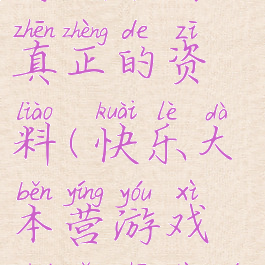 zhēn zhèng de zī
真正的资
liào kuài lè dà
料(快乐大
běn yíng yóu xì
本营游戏